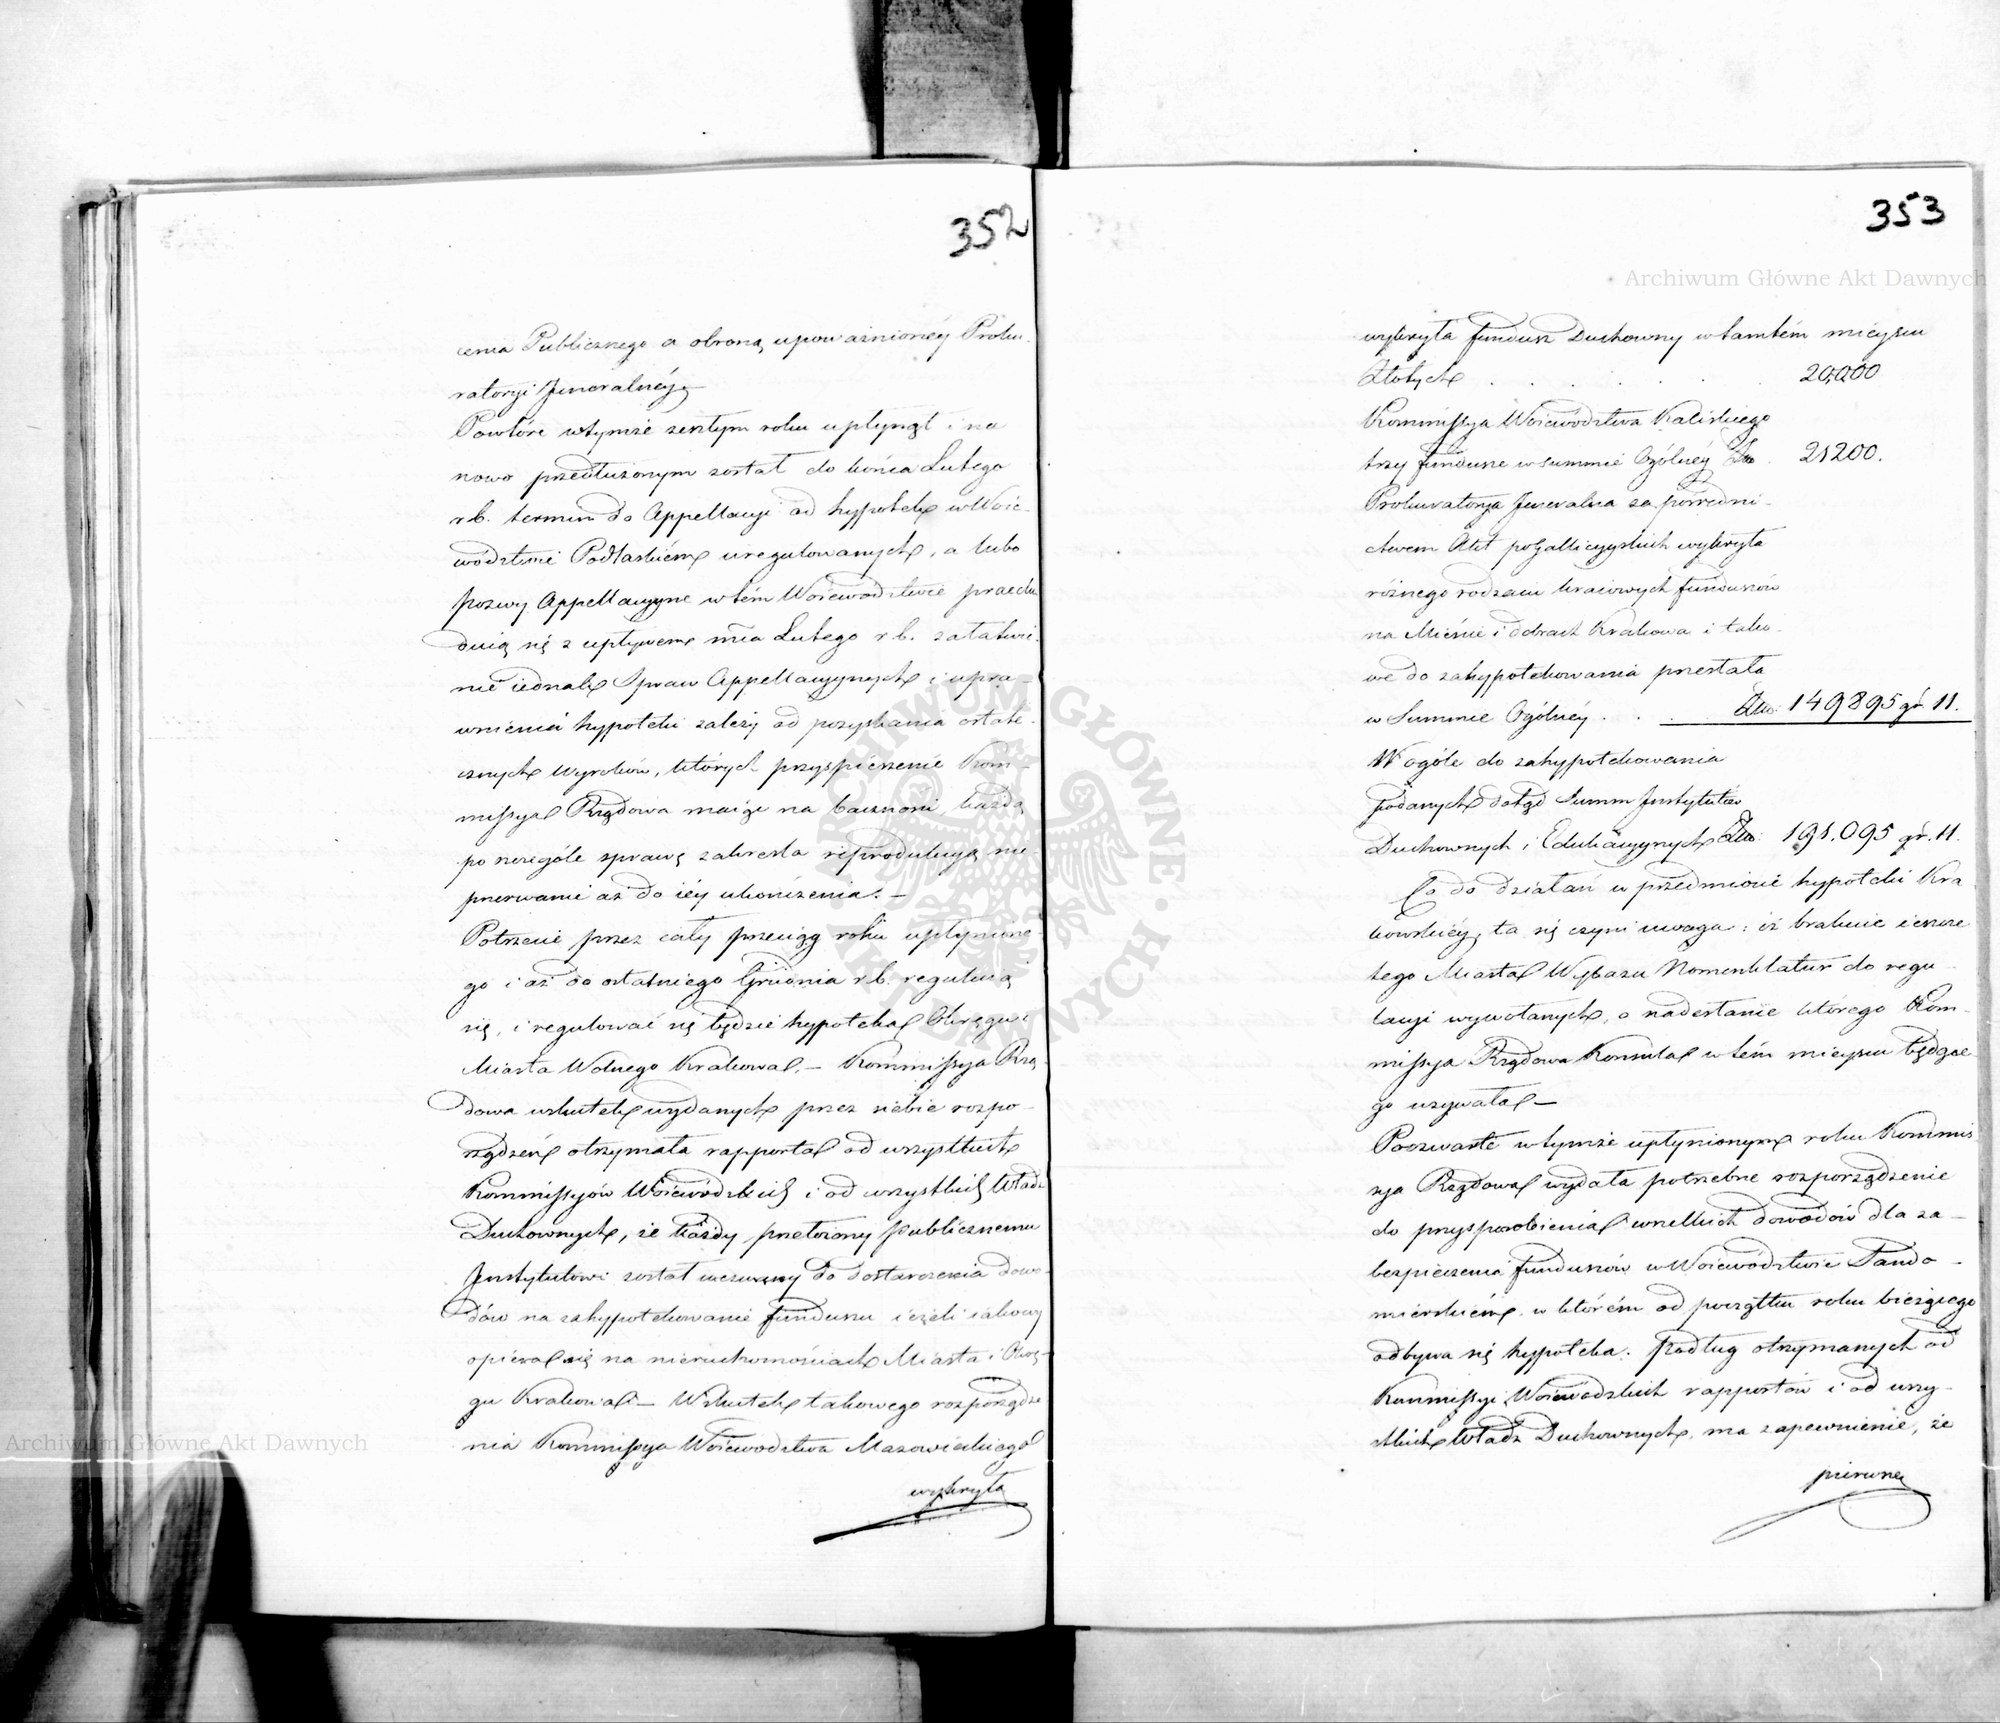 352
cenia Publicznego a obroną upoważnionéy Proku-
ratoryi Jeneralnéy
Powtóre wtymże zeszłym roku upłynął i na
nowo przedłużonym został do końca Lutego
r.b. termin do Appellacyi od hypotek w Woie-
wództwie Podlaskiém uregulowanych, a lubo
pozwy Appellacyyne w tém Woiewództwie
się z upływem mca Lutego r.b. załatwie-
nie iednak Spraw Appellacyynych i upra-
wnienia hypoteki zależy od pozyskania ostate-
cznych Wyroków, których przyspieszenie Kom-
missya Rządowa maiąc na baczności, każdą
po szczególe sprawę zakreśla reproduknuąc nie-
przerwanie aż do iéy ukończenia. –
Potrzecie przez cały przeciąg roku upłynione-
go i aż do ostatniego Grudnia r.b. reguluią
się, i regulować się będzie hypoteka Okręgu i
Miasta Wolnego Krakowa. – Kommissya Rzą-
dowa wskutek wydanych przez siebie rozpo-
rządzeń otrzymała rapporta od wszystkich
Kommissyów Woiewódzkich i od wszystkich Władz
Duchownych, że każdy przełożony publicznemu
Instytutowi został wezwany do dostarczenia dowo-
dów na zahypotekowanie funduszu ieżeli iakowy
opiera się na nieruchomościach Miasta i Okrę-
gu Krakowa – Wskutek takowego rozporządze
nia Kommissya Woiewodztwa Mazowieckiego
wykryła
353
wykryła fundusz Duchowny w tamtém mieyscu
Złotych . . . . . . 20,000
Kommissya Woiewództwa Kaliskiego
trzy fundusze w summie Ogólnéy Złp. 21200.
Prokuratorya Jeneralna za pośredni-
ctwem Akt pogallicyyskich wykryła
różnego rodzaiu kraiowych funduszów
na Mieście i dobrach Krakowa i tako-
we do zahypotekowania przesłała
w Summie Ogólnéy . . . Złp. 149895 gr 11.
W ogóle do zahypotekowania
podanych dotąd Summ Instytutów
Duchownych i Edukacyynych Złp. 191.095 gr. 11.
Co do działań w przedmiocie hypoteki Kra
kowskiéy, ta się czyni uwaga: iż brakuie ieszcze
tego Miasta Wykazu Nomenklatur do regu-
lacyi wywołanych, o nadesłanie którego Kom-
missya Rządowa Konsula w tém mieyscu będące-
go wzywała –
Poczwarte w tymże upłynionym roku Kommis
sya Rządowa wydała potrzebne rozporządzenie
do przysposobienia wszelkich dowodów dla za-
bezpieczenia funduszów w Woiewództwie Sando-
mierskiém w którém od początku roku bieżącego
odbywa się hypoteka. Podług otrzymanych od
Kommissyi Woiewódzkich rapportów i od wszy-
stkich Władz Duchownych, ma zapewnienie, że
pierwsze
Archiwum Główne Akt Dawnych
Archiwum Główne Akt Dawnych
ARCHIWUM GŁÓWNE AKT DAWNYCH